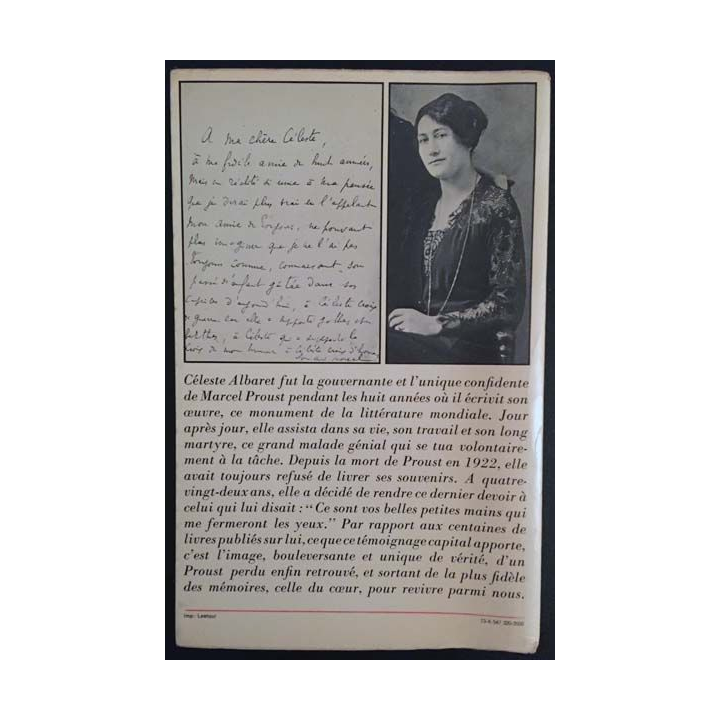 A ma chère Céleste,
à ma fidèle amie de huit années,
mais en réalité si unie à ma pensée
que je dirai plus vrai en l'appelant
mon amie de toujours, ne pouvant
plus imaginer que je ne l'ai pas
toujours connue, connaissant son
passé d'enfant gâtée dans ses
caprices d'aujourd'hui, à Céleste croix
de guerre car elle a supporté gothas et
berthas, à Céleste qui a supporté la
croix de mon humeur à Céleste croix d'honneur
Céleste Albaret fut la gouvernante et l'unique confidente
de Marcel Proust pendant les huit années où il écrivit son
œuvre, ce monument de la littérature mondiale. Jour
après jour, elle assista dans sa vie, son travail et son long
martyre, ce grand malade génial qui se tua volontaire-
ment à la tâche. Depuis la mort de Proust en 1922, elle
avait toujours refusé de livrer ses souvenirs. A quatre-
vingt-deux ans, elle a décidé de rendre ce dernier devoir à
celui qui lui disait : “Ce sont vos belles petites mains qui
me fermeront les yeux.” Par rapport aux centaines de
livres publiés sur lui, ce que ce témoignage capital apporte,
c'est l'image, bouleversante et unique de vérité, d'un
Proust perdu enfin retrouvé, et sortant de la plus fidèle
des mémoires, celle du cœur, pour revivre parmi nous.
Imp. Lestour